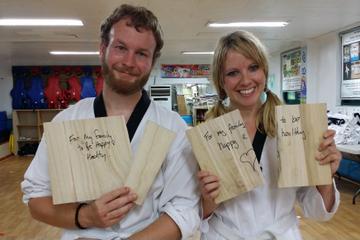 For my family
to be Happy &
Healthy.
For my family
happy &
to be
healthy